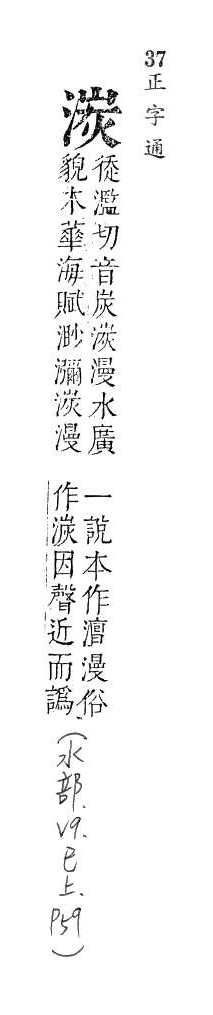 37正字通
湠
徒濫切音炭湠漫水廣
貌木華海賦渺瀰湠漫
一說本作潸漫俗
作湠因聲近而譌
(水部.V9.巳上.P59)